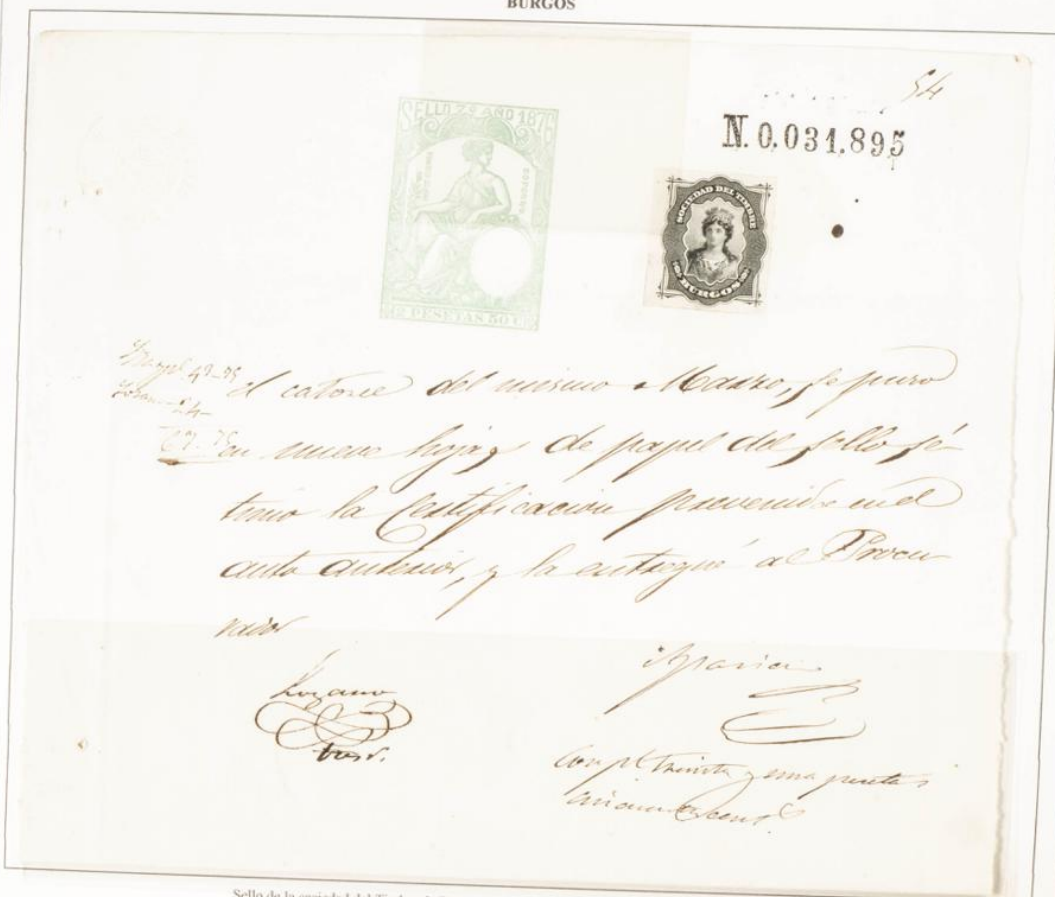 BURGOS
54
SELLO 7º AÑO 1876
N. 0.031.895
SOCIEDAD DEL TIMBRE
BURGOS
2 PESETAS 50 C
43-75
24-
67-75
El catorce del mismo Marzo, se puso
en nueve hojas de papel del sello sé-
timo la Certificacion prevenida en el
auto anterior, y la entregué al Procu-
rador
Aparicio
Lozano
treinta y una pesetas
Sello de la sociedad del